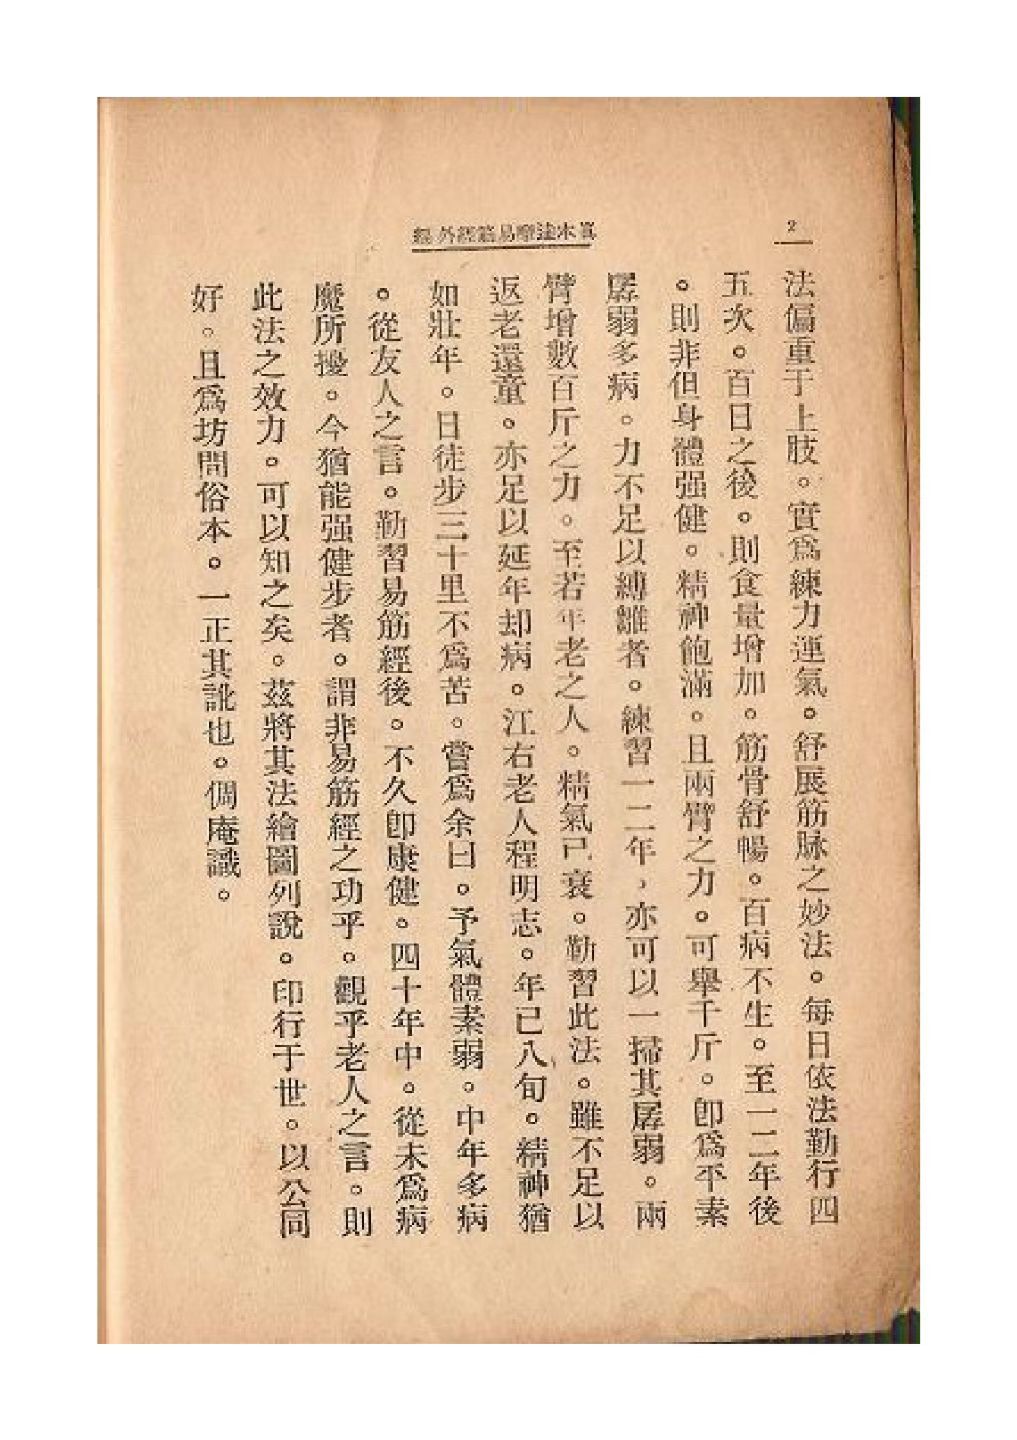 2
眞本達摩易筋經外經
法偏重于上肢。實爲練力運氣。舒展筋脉之妙法。每日依法勤行四
五次。百日之後。則食量增加。筋骨舒暢。百病不生。至一二年後
。則非但身體强健。精神飽滿。且兩臂之力。可舉千斤。卽爲平素
孱弱多病。力不足以縛雛者。練習一二年，亦可以一掃其孱弱。兩
臂增數百斤之力。至若年老之人。精氣已衰。勤習此法。雖不足以
返老還童。亦足以延年却病。江右老人程明志。年已八旬。精神猶
如壯年。日徒步三十里不爲苦。嘗爲余曰。予氣體素弱。中年多病
。從友人之言。勤習易筋經後。不久卽康健。四十年中。從未爲病
魔所擾。今猶能强健步者。謂非易筋經之功乎。觀乎老人之言。則
此法之效力。可以知之矣。茲將其法繪圖列說。印行于世。以公同
好。且爲坊間俗本。一正其訛也。倜庵識。